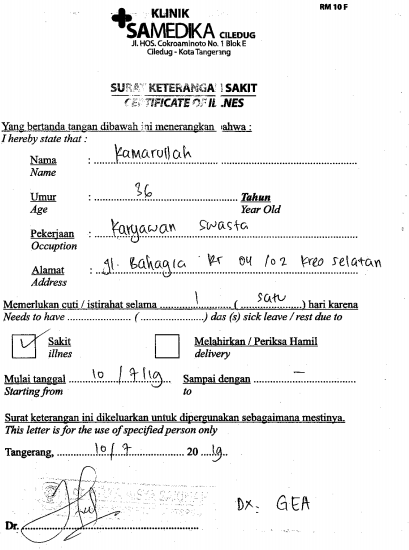 RM 10 F
KLINIK
SAMEDIKA CILEDUG
Jl. HOS. Cokroaminoto No. 1 Blok E
Ciledug - Kota Tangerang
SURAT KETERANGAN SAKIT
CERTIFICATE OF ILNES
Yang bertanda tangan dibawah ini menerangkan bahwa :
I hereby state that :
Nama : Kamarullah
Name
Umur : 36 Tahun
Age Year Old
Pekerjaan : Karyawan Swasta
Occuption
Alamat : Jl. Bahagia Rt 04 /02 Kreo Selatan
Address
Memerlukan cuti / istirahat selama 1 ( satu ) hari karena
Needs to have .................... ( .................... ) das (s) sick leave / rest due to
Sakit Melahirkan / Periksa Hamil
illnes delivery
Mulai tanggal 10 / 7 /19 Sampai dengan –
Starting from to
Surat keterangan ini dikeluarkan untuk dipergunakan sebagaimana mestinya.
This letter is for the use of specified person only
Tangerang, 10 / 7 20 19
DX: GEA
Dr.